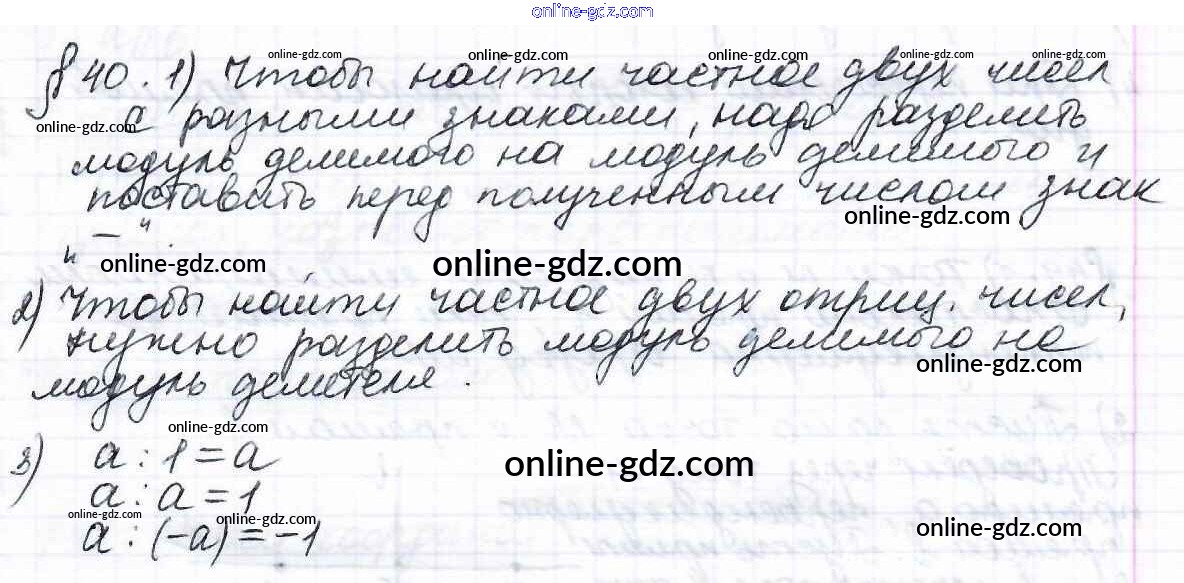 online-gdz.com
§ 40. 1) Чтобы найти частное двух чисел
online-gdz.com online-gdz.com online-gdz.com online-gdz.com
с разными знаками, надо разделить
online-gdz.com
модуль делимого на модуль делимого и
поставить перед полученным числом знак
online-gdz.com
„—“.
online-gdz.com online-gdz.com
2) Чтобы найти частное двух отриц. чисел,
нужно разделить модуль делимого на
online-gdz.com
модуль делителя.
online-gdz.com
3) a : 1 = a
online-gdz.com
a : a = 1
online-gdz.com online-gdz.com online-gdz.com
a : (-a) = -1